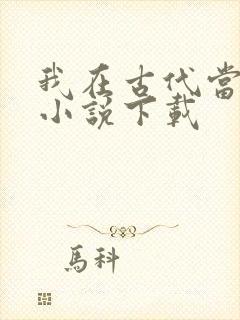 我在古代當
小說下載
馬科